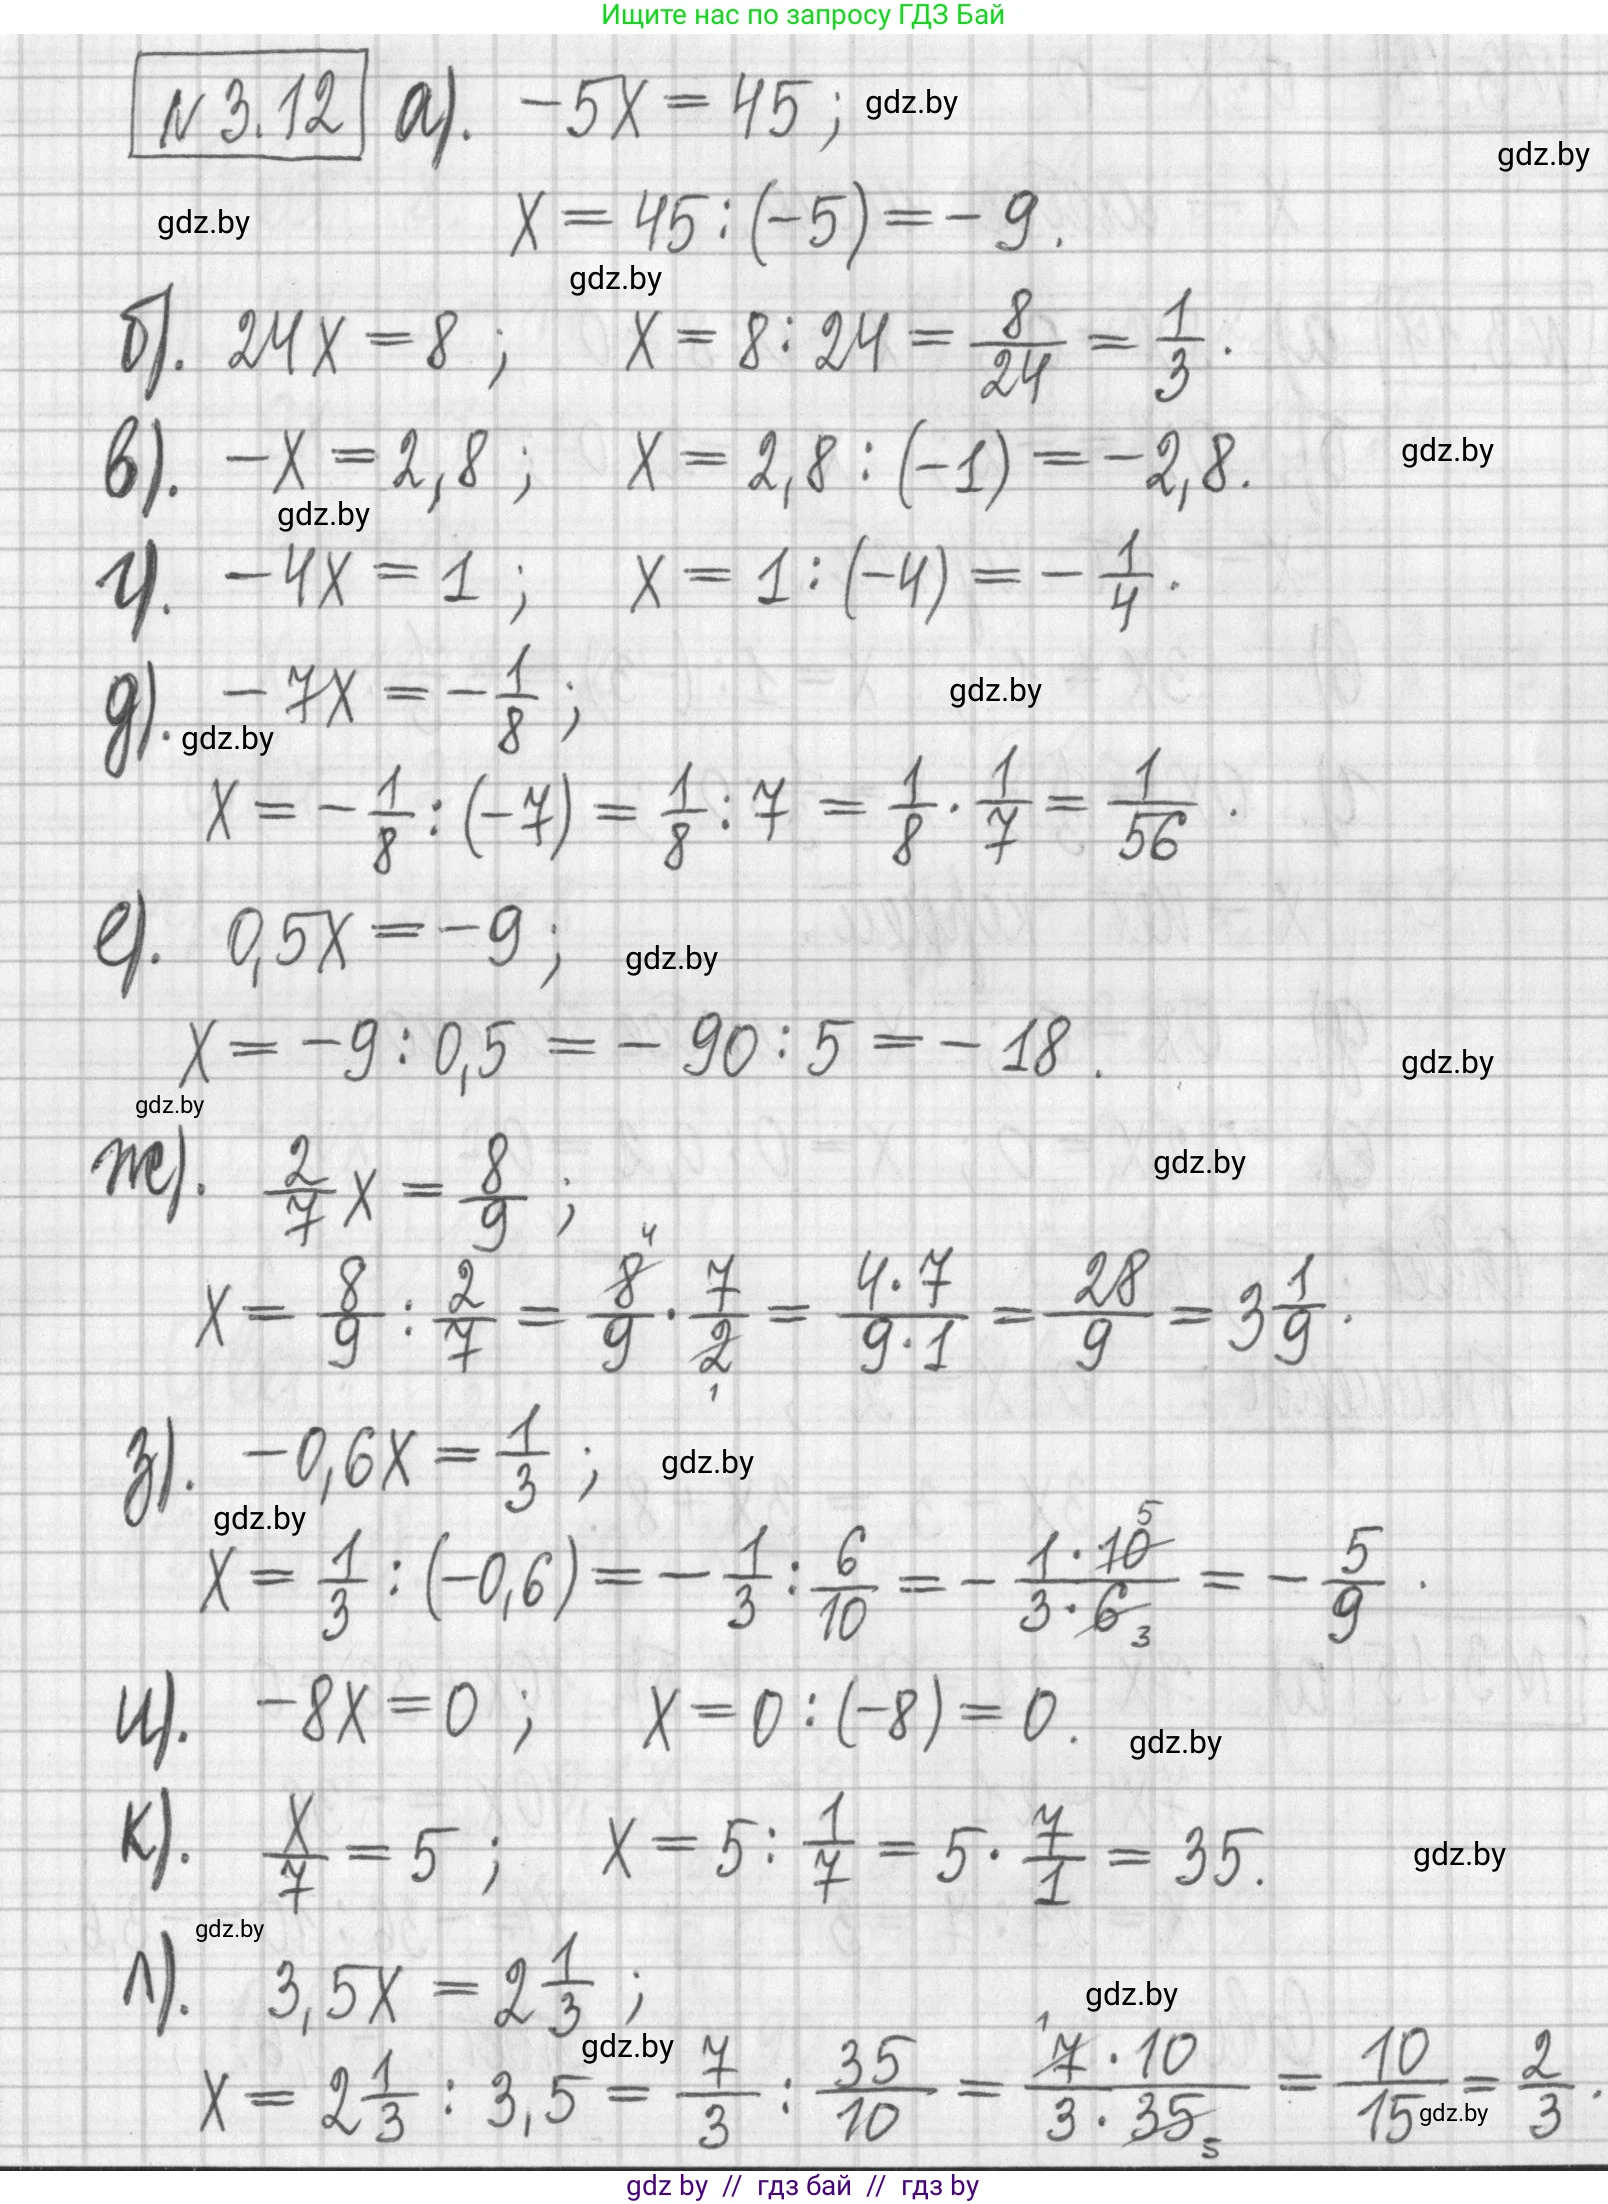 Ищите нас по запросу ГДЗ Бай
N 3.12 а). -5x = 45; gdz.by
gdz.by
gdz.by x = 45 : (-5) = -9.
gdz.by
б). 24x = 8; x = 8 : 24 = 8/24 = 1/3.
в). -x = 2,8; x = 2,8 : (-1) = -2,8. gdz.by
gdz.by
г). -4x = 1; x = 1 : (-4) = -1/4.
д). -7x = -1/8; gdz.by
gdz.by
x = -1/8 : (-7) = 1/8 : 7 = 1/8 · 1/7 = 1/56.
е). 0,5x = -9; gdz.by
x = -9 : 0,5 = -90 : 5 = -18. gdz.by
gdz.by
ж). 2/7 x = 8/9; gdz.by
x = 8/9 : 2/7 = 8 4/9 · 7/2 1 = 4·7/9·1 = 28/9 = 3 1/9.
з). -0,6x = 1/3; gdz.by
gdz.by
x = 1/3 : (-0,6) = -1/3 : 6/10 = -1·10 5/3·6 3 = -5/9.
и). -8x = 0; x = 0 : (-8) = 0. gdz.by
к). x/7 = 5; x = 5 : 1/7 = 5 · 7/1 = 35. gdz.by
gdz.by
л). 3,5x = 2 1/3; gdz.by
gdz.by
x = 2 1/3 : 3,5 = 7/3 : 35/10 = 1 7·10/3·35 5 = 10/15 = 2/3.
gdz.by
gdz by // гдз бай // gdz by